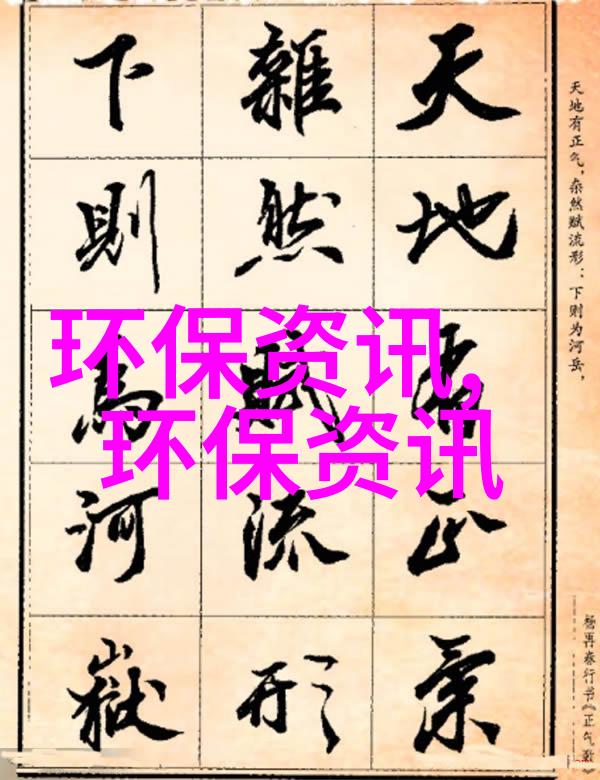 天地有正氣
雜然賦流形
下則為河嶽
天地有正气，杂然赋流形：下则为河岳，
杨再春行书《正气歌》
环保资讯，
环保资讯